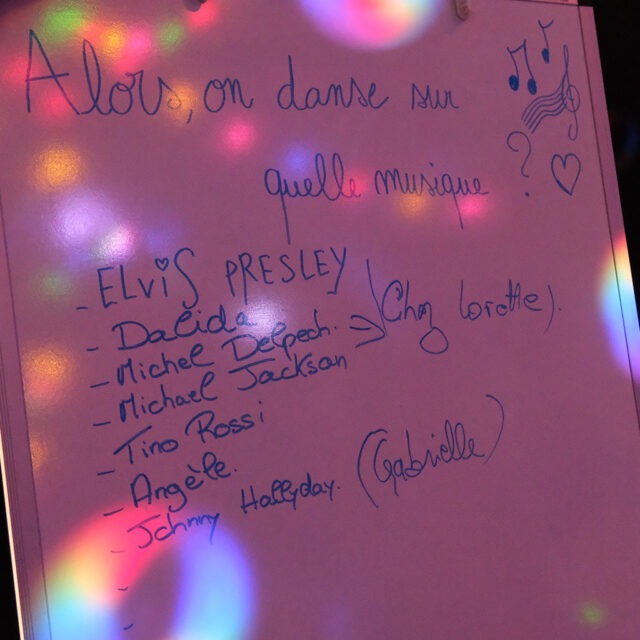 Alors, on danse sur
quelle musique ?
- ELViS PRESLEY
- Dalida
- Michel Delpech. => (Chez Lorette).
- Michael Jackson
- Tino Rossi
- Angèle.
- Johnny Hallyday. (Gabrielle)
-
-